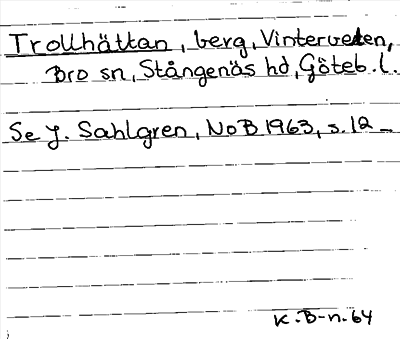 Trollhättan, berg, Vinterveten,
Bro sn, Stångenäs hd, Göteb. l.
Se J. Sahlgren, NoB 1963, s. 12 –
K. B-n. 64